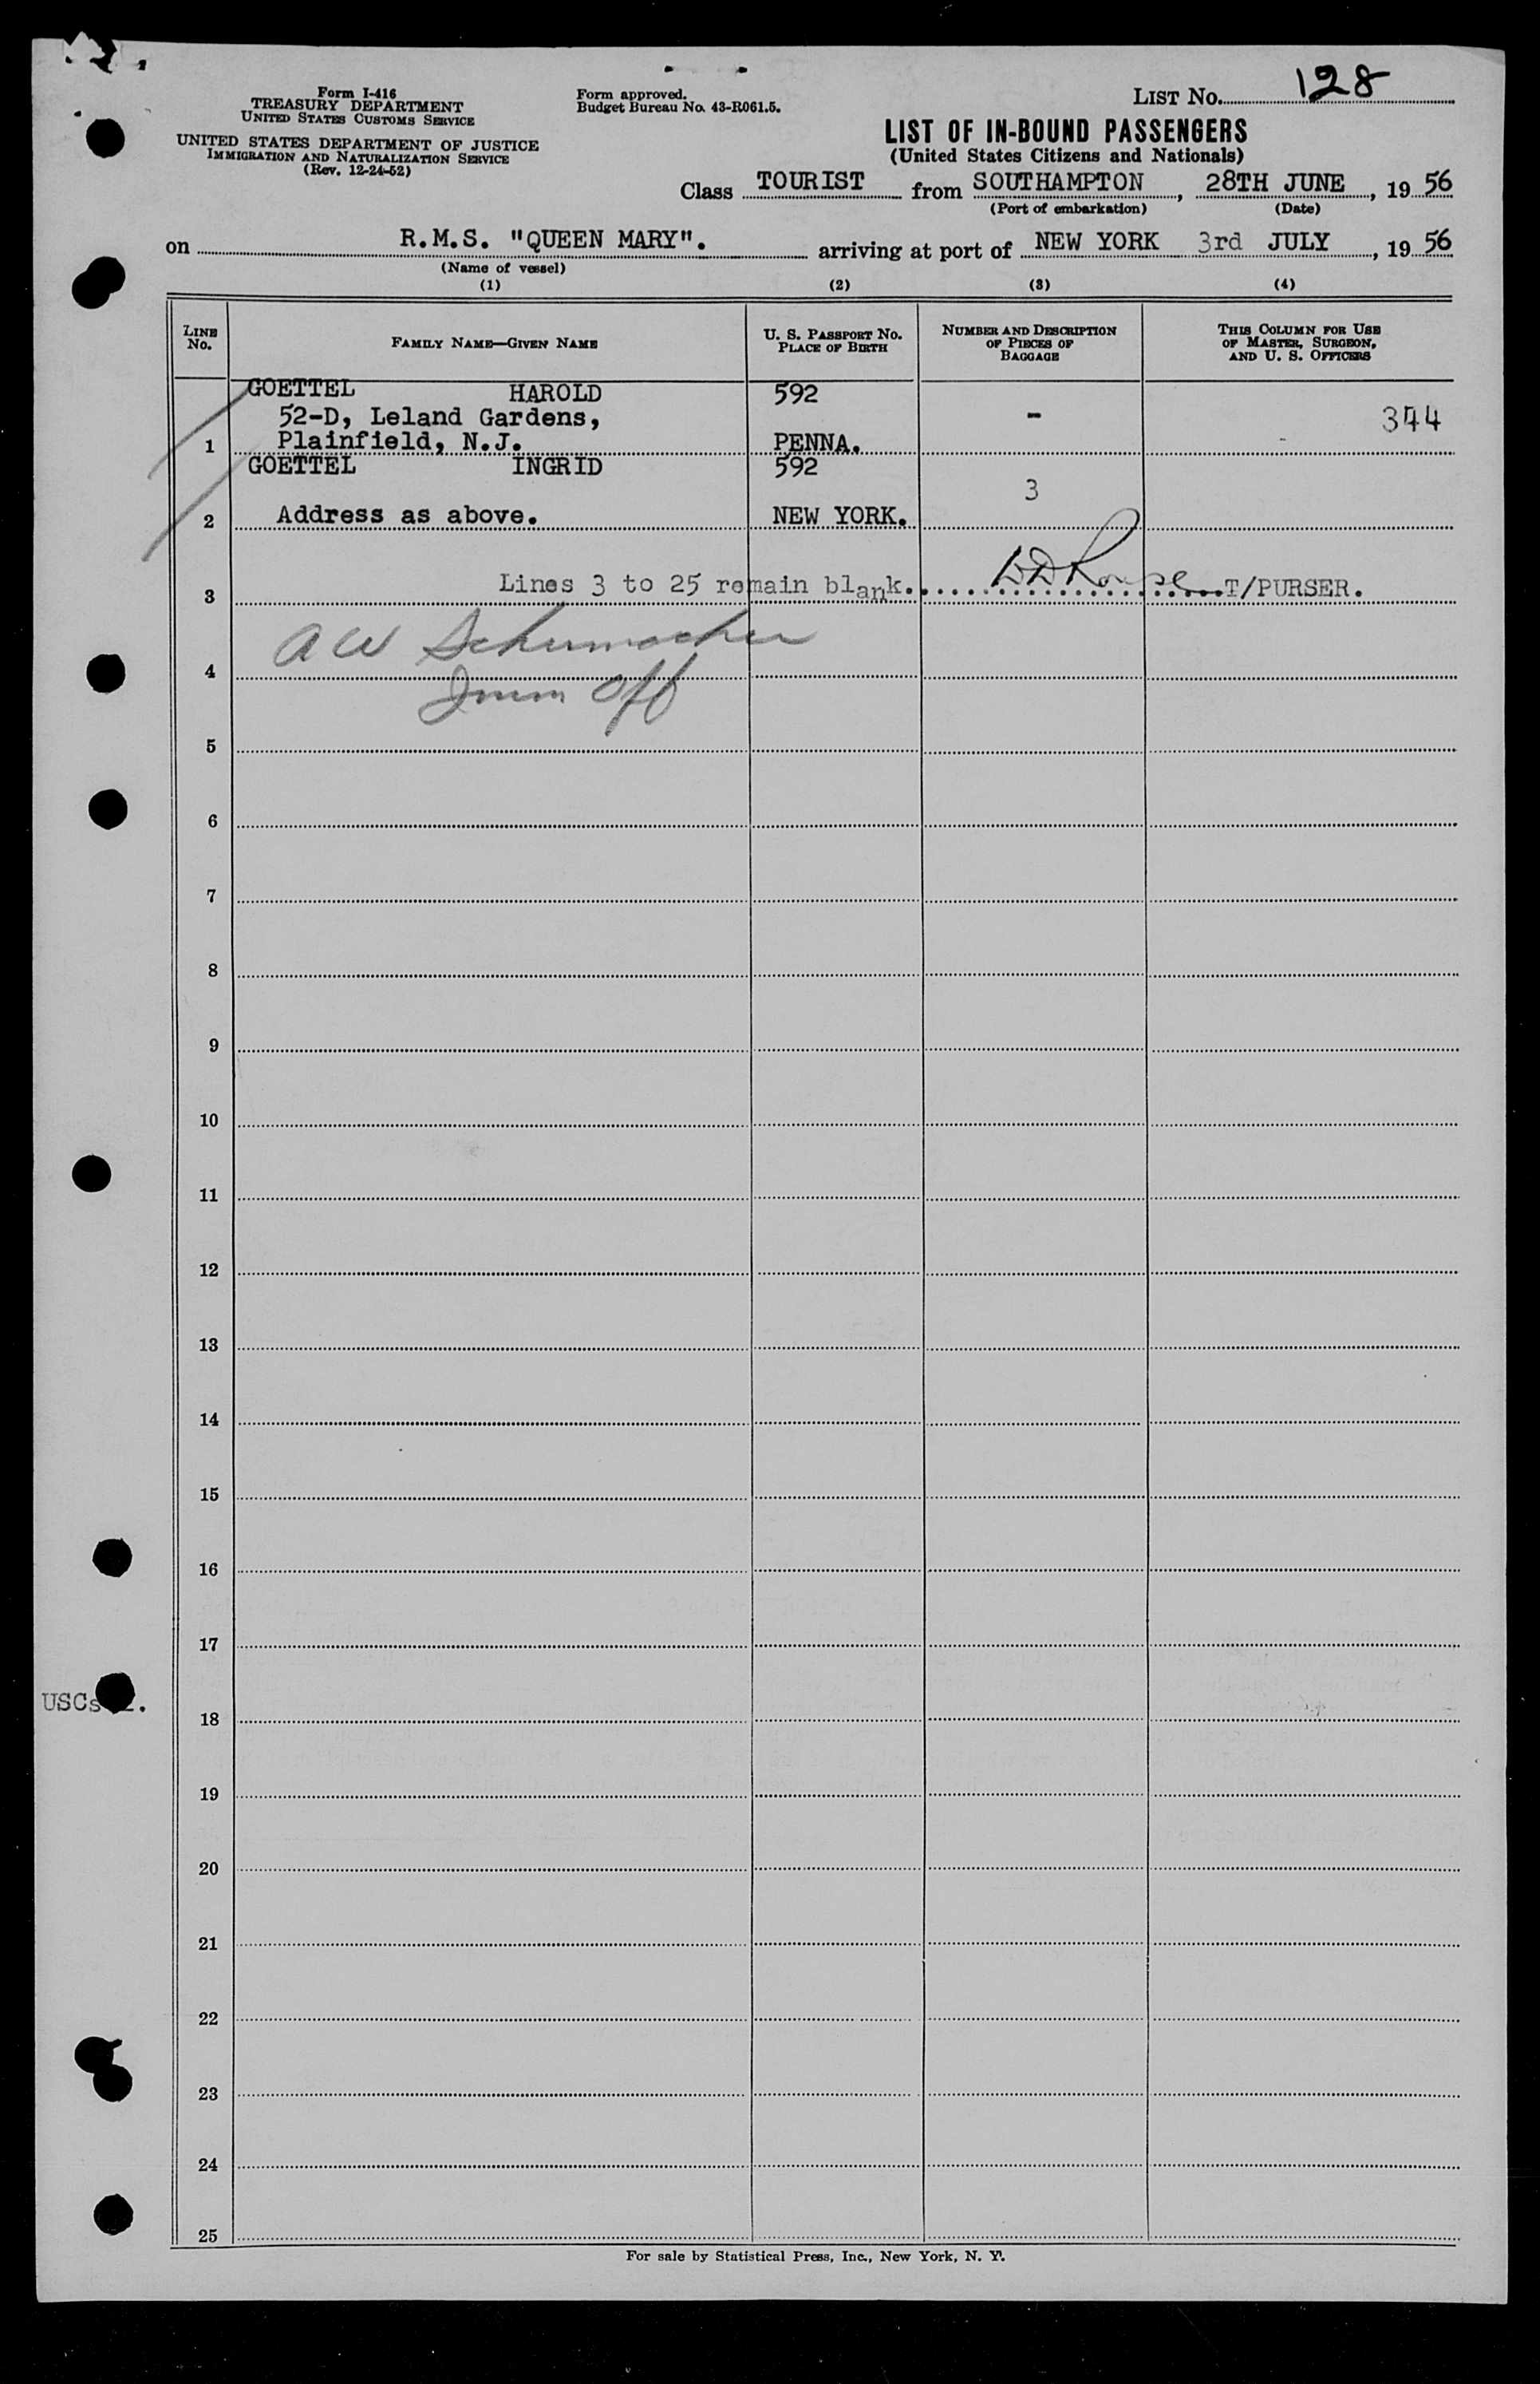 Form I-416
TREASURY DEPARTMENT
UNITED STATES CUSTOMS SERVICE
UNITED STATES DEPARTMENT OF JUSTICE
IMMIGRATION AND NATURALIZATION SERVICE
(Rev. 12-24-52)
Form approved.
Budget Bureau No. 43-R061.5.
LIST No. 128
LIST OF IN-BOUND PASSENGERS
(United States Citizens and Nationals)
Class TOURIST from SOUTHAMPTON, 28TH JUNE, 19 56
(Port of embarkation) (Date)
on R.M.S. "QUEEN MARY". arriving at port of NEW YORK 3rd JULY, 19 56
(Name of vessel)
(1) (2) (3) (4)
LINE No. FAMILY NAME—GIVEN NAME U. S. PASSPORT No. PLACE OF BIRTH NUMBER AND DESCRIPTION OF PIECES OF BAGGAGE THIS COLUMN FOR USE OF MASTER, SURGEON, AND U. S. OFFICERS
GOETTEL HAROLD 592
52-D, Leland Gardens, - 344
1 Plainfield, N.J. PENNA.
GOETTEL INGRID 592
3
2 Address as above. NEW YORK.
3 Lines 3 to 25 remain blank. T/PURSER.
A W Schumacher
4
Imm Off
5
6
7
8
9
10
11
12
13
14
15
16
17
USCs
18
19
20
21
22
23
24
25
For sale by Statistical Press, Inc., New York, N. Y.